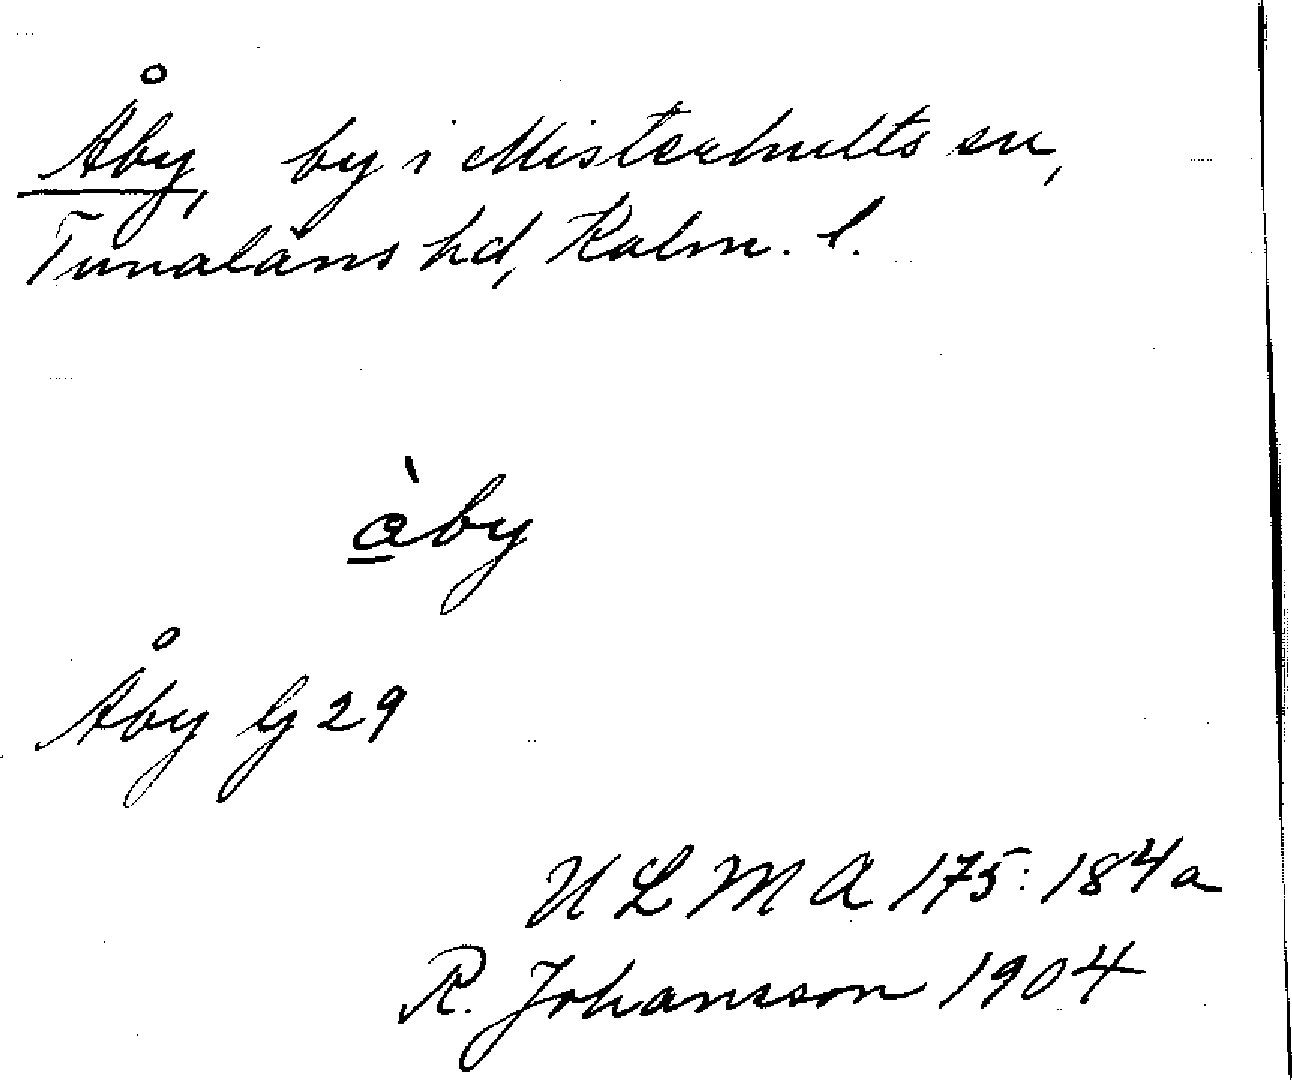 Åby, by i Misterhults sn,
Tunaläns hd, Kalm. l.
å̱̀by
Åby G 29
ULMA 175:184a
R. Johansson 1904